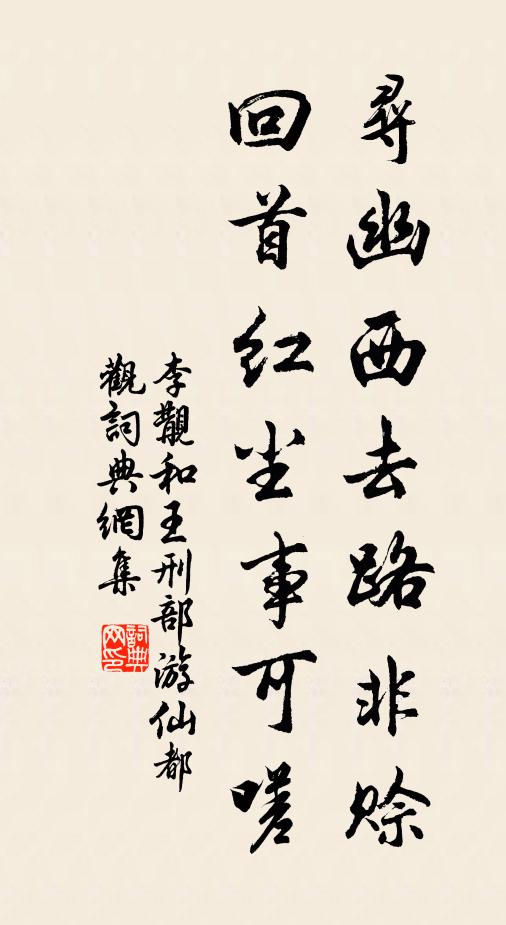 尋幽西去路非赊
回首红尘事可嗟
李觏和王刑部游仙都
觀詞典網集
詞典网印